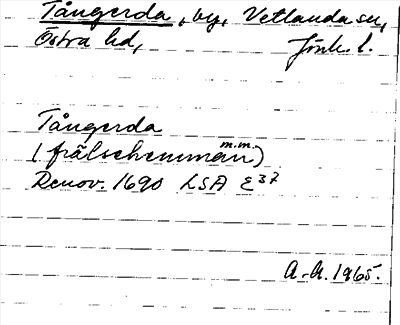 Tångerda, by, Vetlanda sn,
Östra hd, Jönk. l.
Tångerda
(frälschemman) m.m.
Renov. 1690 LSA E37
A.-M. 1965.